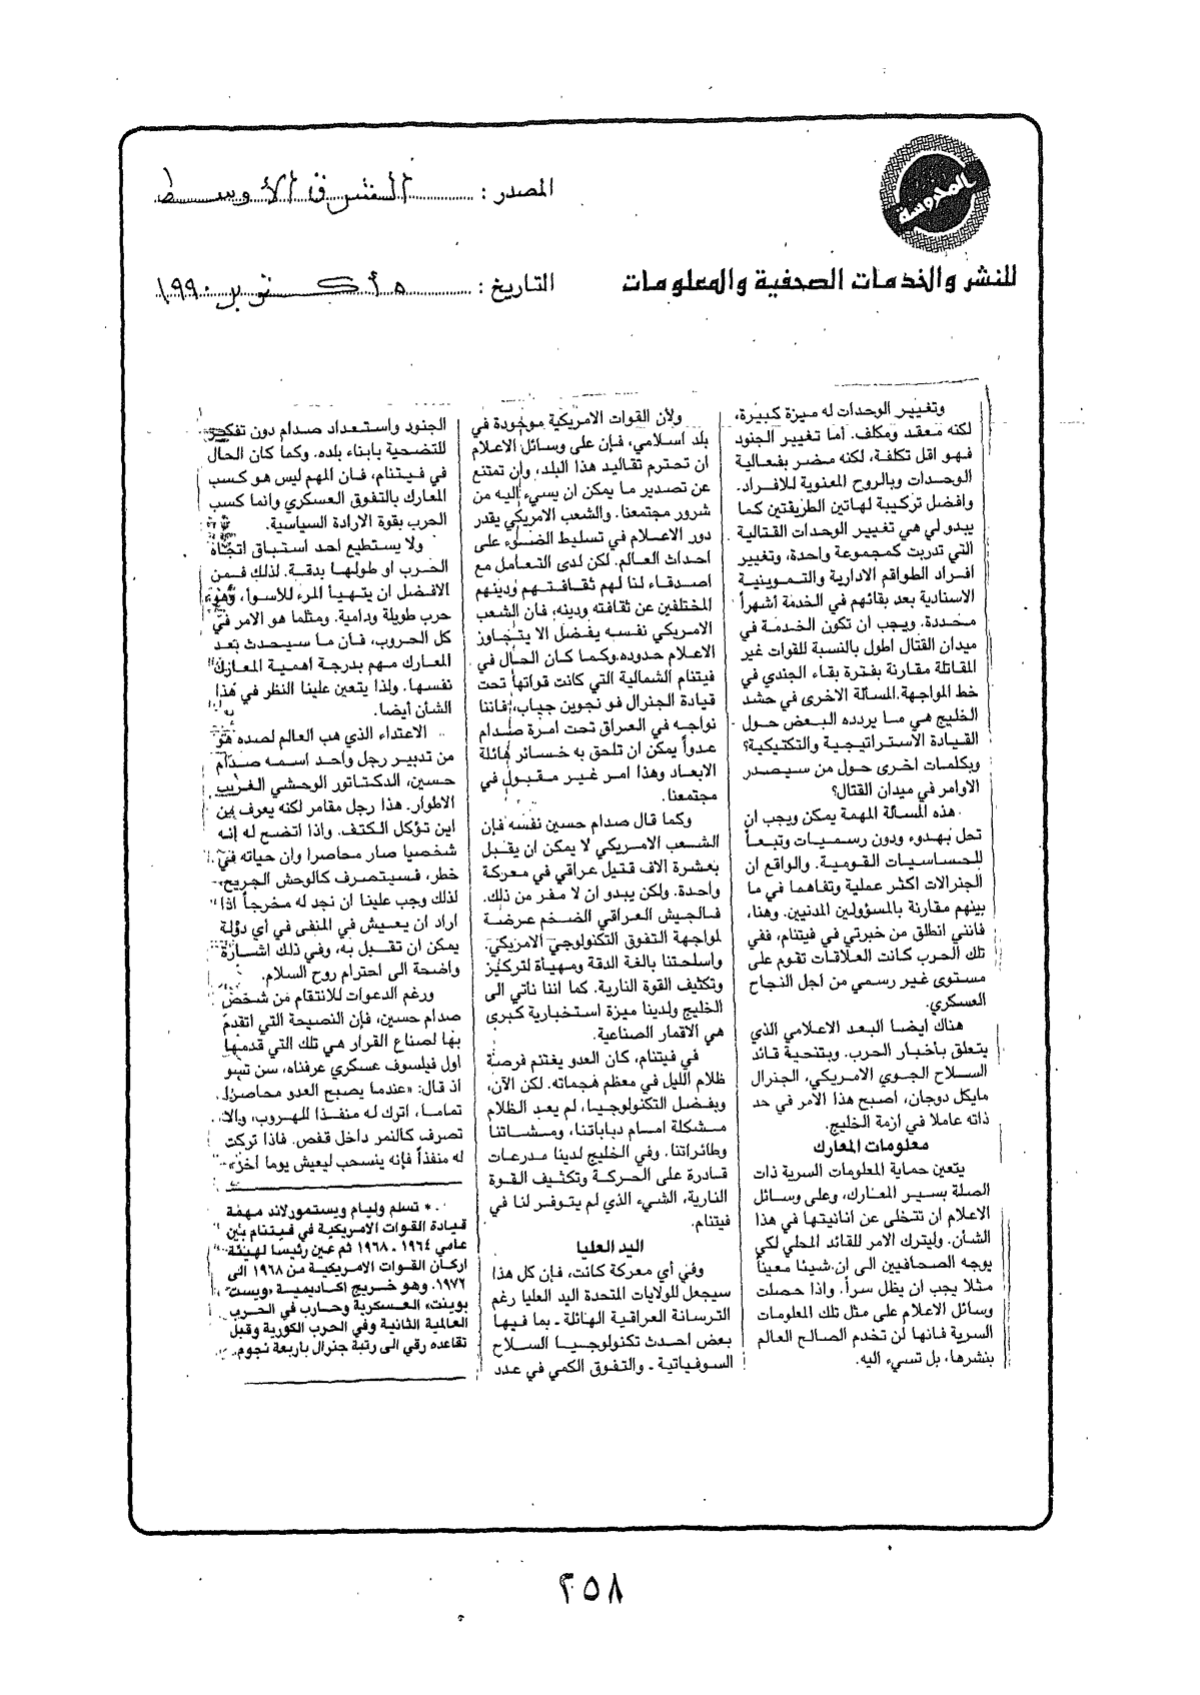 المحروسة
المصدر : الشرق الأوسط
للنشر والخدمات الصحفية والمعلومات
التاريخ : ٥ أكتوبر ١٩٩٠
وتغيير الوحدات له ميزة كبيرة،
لكنه معقد ومكلف. أما تغيير الجنود
فهو اقل تكلفة، لكنه مضر بفعالية
الوحدات وبالروح المعنوية للافراد.
وافضل تركيبة لهاتين الطريقتين كما
يبدو لي هي تغيير الوحدات القتالية
التي تدربت كمجموعة واحدة، وتغيير
افراد الطواقم الادارية والتموينية
الاسنادية بعد بقائهم في الخدمة أشهراً
محددة. ويجب ان تكون الخدمة في
ميدان القتال اطول بالنسبة للقوات غير
المقاتلة مقارنة بفترة بقاء الجندي في
خط المواجهة. المسألة الاخرى في حشد
الخليج هي ما يردده البعض حول
القيادة الاستراتيجية والتكتيكية؟
وبكلمات اخرى حول من سيصدر
الاوامر في ميدان القتال؟
هذه المسألة المهمة يمكن ويجب ان
تحل بهدوء ودون رسميات وتبعاً
للحساسيات القومية. والواقع ان
الجنرالات اكثر عملية وتفاهما في ما
بينهم مقارنة بالمسؤولين المدنيين. وهنا،
فانني انطلق من خبرتي في فيتنام، ففي
تلك الحرب كانت العلاقات تقوم على
مستوى غير رسمي من اجل النجاح
العسكري.
هناك ايضا البعد الاعلامي الذي
يتعلق باخبار الحرب. وبتنحية قائد
السلاح الجوي الامريكي، الجنرال
مايكل دوجان، اصبح هذا الأمر في حد
ذاته عاملا في ازمة الخليج.
معلومات المعارك
يتعين حماية المعلومات السرية ذات
الصلة بسير المعارك، وعلى وسائل
الاعلام ان تتخلى عن انانيتها في هذا
الشأن. وليترك الامر للقائد المحلي لكي
يوجه الصحافيين الى ان شيئا معيناً
مثلا يجب ان يظل سراً. واذا حصلت
وسائل الاعلام على مثل تلك المعلومات
السرية فانها لن تخدم الصالح العالم
بنشرها، بل تسيء اليه.
ولأن القوات الامريكية موجودة في
بلد اسلامي، فإن على وسائل الاعلام
ان تحترم تقاليد هذا البلد، وان تمتنع
عن تصدير ما يمكن ان يسيء اليه من
شرور مجتمعنا. والشعب الامريكي يقدر
دور الاعلام في تسليط الضوء على
احداث العالم. لكن لدى التعامل مع
اصدقاء لنا لهم ثقافتهم ودينهم
المختلفين عن ثقافته ودينه، فان الشعب
الامريكي نفسه يفضل الا يتجاوز
الاعلام حدوده. وكما كان الحال في
فيتنام الشمالية التي كانت قواتها تحت
قيادة الجنرال فو نجوين جياب، فاننا
نواجه في العراق تحت امرة صدام
عدواً يمكن ان تلحق به خسائر هائلة
الابعاد وهذا امر غير مقبول في
مجتمعنا.
وكما قال صدام حسين نفسه فإن
الشعب الامريكي لا يمكن ان يقبل
بعشرة الاف قتيل عراقي في معركة
واحدة. ولكن يبدو ان لا مفر من ذلك.
فالجيش العراقي الضخم عرضة
لمواجهة التفوق التكنولوجي الامريكي.
واسلحتنا بالغة الدقة ومهيأة لتركيز
وتكثيف القوة النارية. كما اننا نأتي الى
الخليج ولدينا ميزة استخبارية كبرى
هي الاقمار الصناعية.
في فيتنام، كان العدو يغتنم فرصة
ظلام الليل في معظم هجماته. لكن الآن،
وبفضل التكنولوجيا، لم يعد الظلام
مشكلة امام دباباتنا، ومشاتنا
وطائراتنا. وفي الخليج لدينا مدرعات
قادرة على الحركة وتكثيف القوة
النارية، الشيء الذي لم يتوفر لنا في
فيتنام.
اليد العليا
وفي أي معركة كانت، فإن كل هذا
سيجعل للولايات المتحدة اليد العليا رغم
الترسانة العراقية الهائلة ـ بما فيها
بعض احدث تكنولوجيا السلاح
السوفياتية ـ والتفوق الكمي في عدد
الجنود واستعداد صدام دون تفكير
للتضحية بأبناء بلده. وكما كان الحال
في فيتنام، فان المهم ليس هو كسب
المعارك بالتفوق العسكري وانما كسب
الحرب بقوة الارادة السياسية.
ولا يستطيع احد استباق اتجاه
الحرب او طولها بدقة. لذلك فمن
الافضل ان يتهيأ المرء للأسوأ، وهو
حرب طويلة ودامية. ومثلما هو الامر في
كل الحروب، فان ما سيحدث بعد
المعارك مهم بدرجة اهمية المعارك
نفسها. ولذا يتعين علينا النظر في هذا
الشأن أيضا.
الاعتداء الذي هب العالم لصده هو
من تدبير رجل واحد اسمه صدام
حسين، الدكتاتور الوحشي الغريب
الاطوار. هذا رجل مقامر لكنه يعرف من
اين تؤكل الكتف. واذا اتضح له إنه
شخصيا صار محاصرا وان حياته في
خطر، فسيتصرف كالوحش الجريح.
لذلك وجب علينا ان نجد له مخرجاً اذا
اراد ان يعيش في المنفى في أي دولة
يمكن ان تقبل به، وفي ذلك اشارة
واضحة الى احترام روح السلام.
ورغم الدعوات للانتقام من شخص
صدام حسين، فإن النصيحة التي اتقدم
بها لصناع القرار هي تلك التي قدمها
اول فيلسوف عسكري عرفناه، سن تسو
اذ قال: «عندما يصبح العدو محاصرا
تماما، اترك له منفذا للهروب، والا
تصرف كالنمر داخل قفص. فاذا تركت
له منفذاً فإنه ينسحب ليعيش يوما آخر»
* تسلم وليام ويستمورلاند مهمة
قيادة القوات الامريكية في فيتنام بين
عامي ١٩٦٤ ـ ١٩٦٨ ثم عين رئيسا لهيئة
اركان القوات الامريكية من ١٩٦٨ الى
١٩٧٢. وهو خريج اكاديمية «ويست
بوينت» العسكرية وحارب في الحرب
العالمية الثانية وفي الحرب الكورية وقبل
تقاعده رقي الى رتبة جنرال باربعة نجوم.
٢٥٨